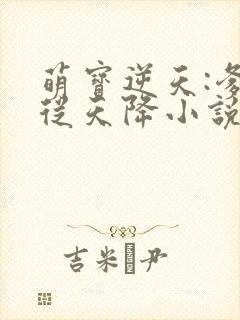 萌寶逆天:
從天降小說
吉米 尹